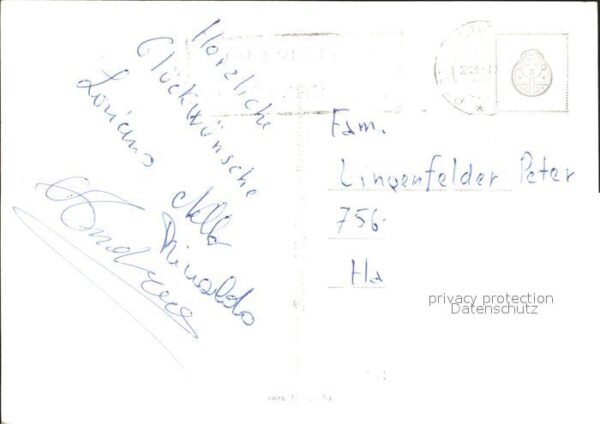 Herzliche
Glückwünsche
Loriano Nella
Rinaldo
Andrea
Fam.
Lingenfelder Peter
756
Ha
privacy protection
Datenschutz